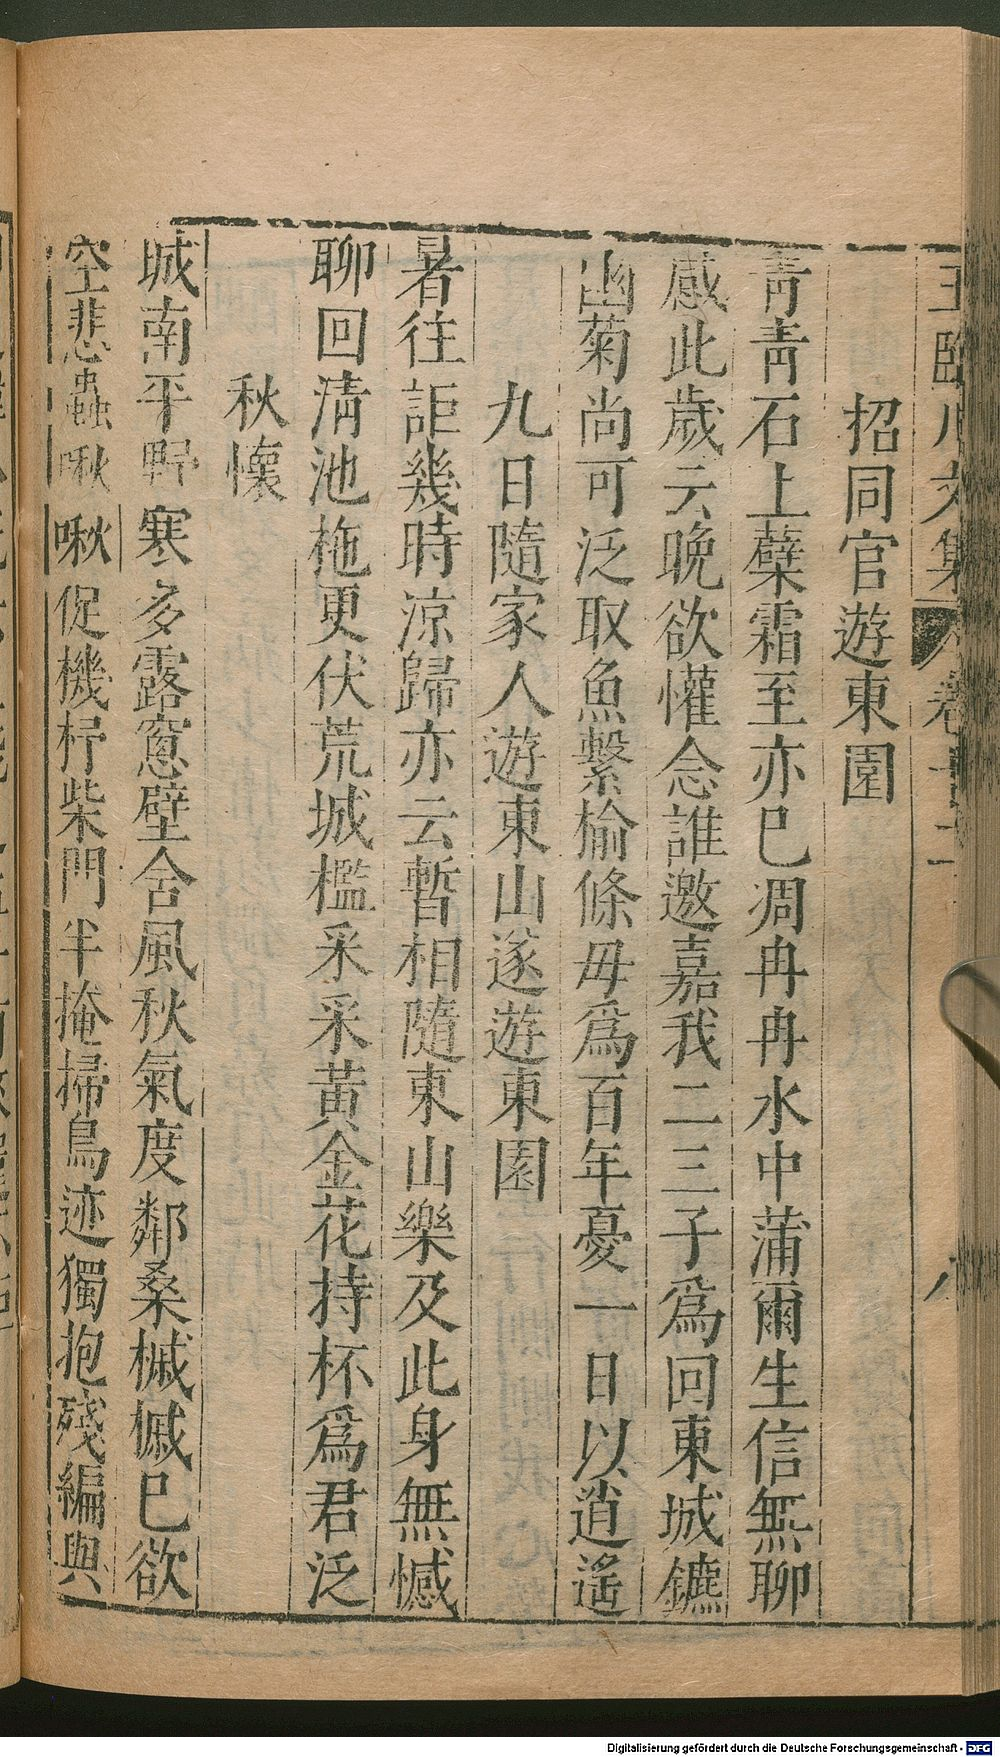 王臨川文集 卷十二
招同官遊東園
青青石上蘖霜至亦已凋冉冉水中蒲爾生信無聊
感此歲云晚欲懽念誰邀嘉我二三子爲回東城鑣
幽菊尚可泛取魚繫榆條毋爲百年憂一日以逍遙
九日隨家人遊東山遂遊東園
暑往詎幾時涼歸亦云暫相隨東山樂及此身無憾
聊回清池柂更伏荒城檻采采黃金花持杯爲君泛
秋懷
城南平野寒多露窻壁含風秋氣度鄰桑槭槭已欲
空悲蟲啾啾促機杼柴門半掩掃鳥迹獨抱殘編與
Digitalisierung gefördert durch die Deutsche Forschungsgemeinschaft - DFG